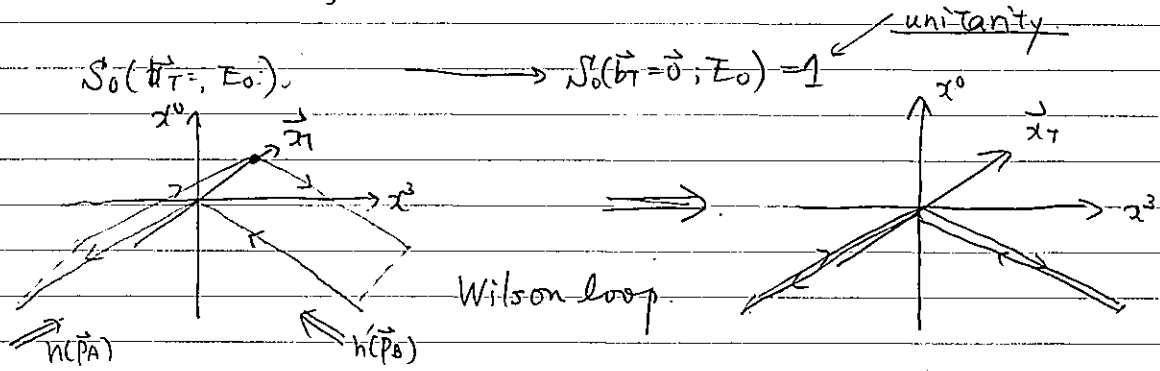 unitarity.
S₀(b⃗_T=, E₀). → S₀(b⃗_T=0⃗; E₀) = 1
x⁰ x⃗_T x³ ⇒ x⁰ x⃗_T x³
Wilson loop.
n(p⃗_A) n'(p⃗_B)